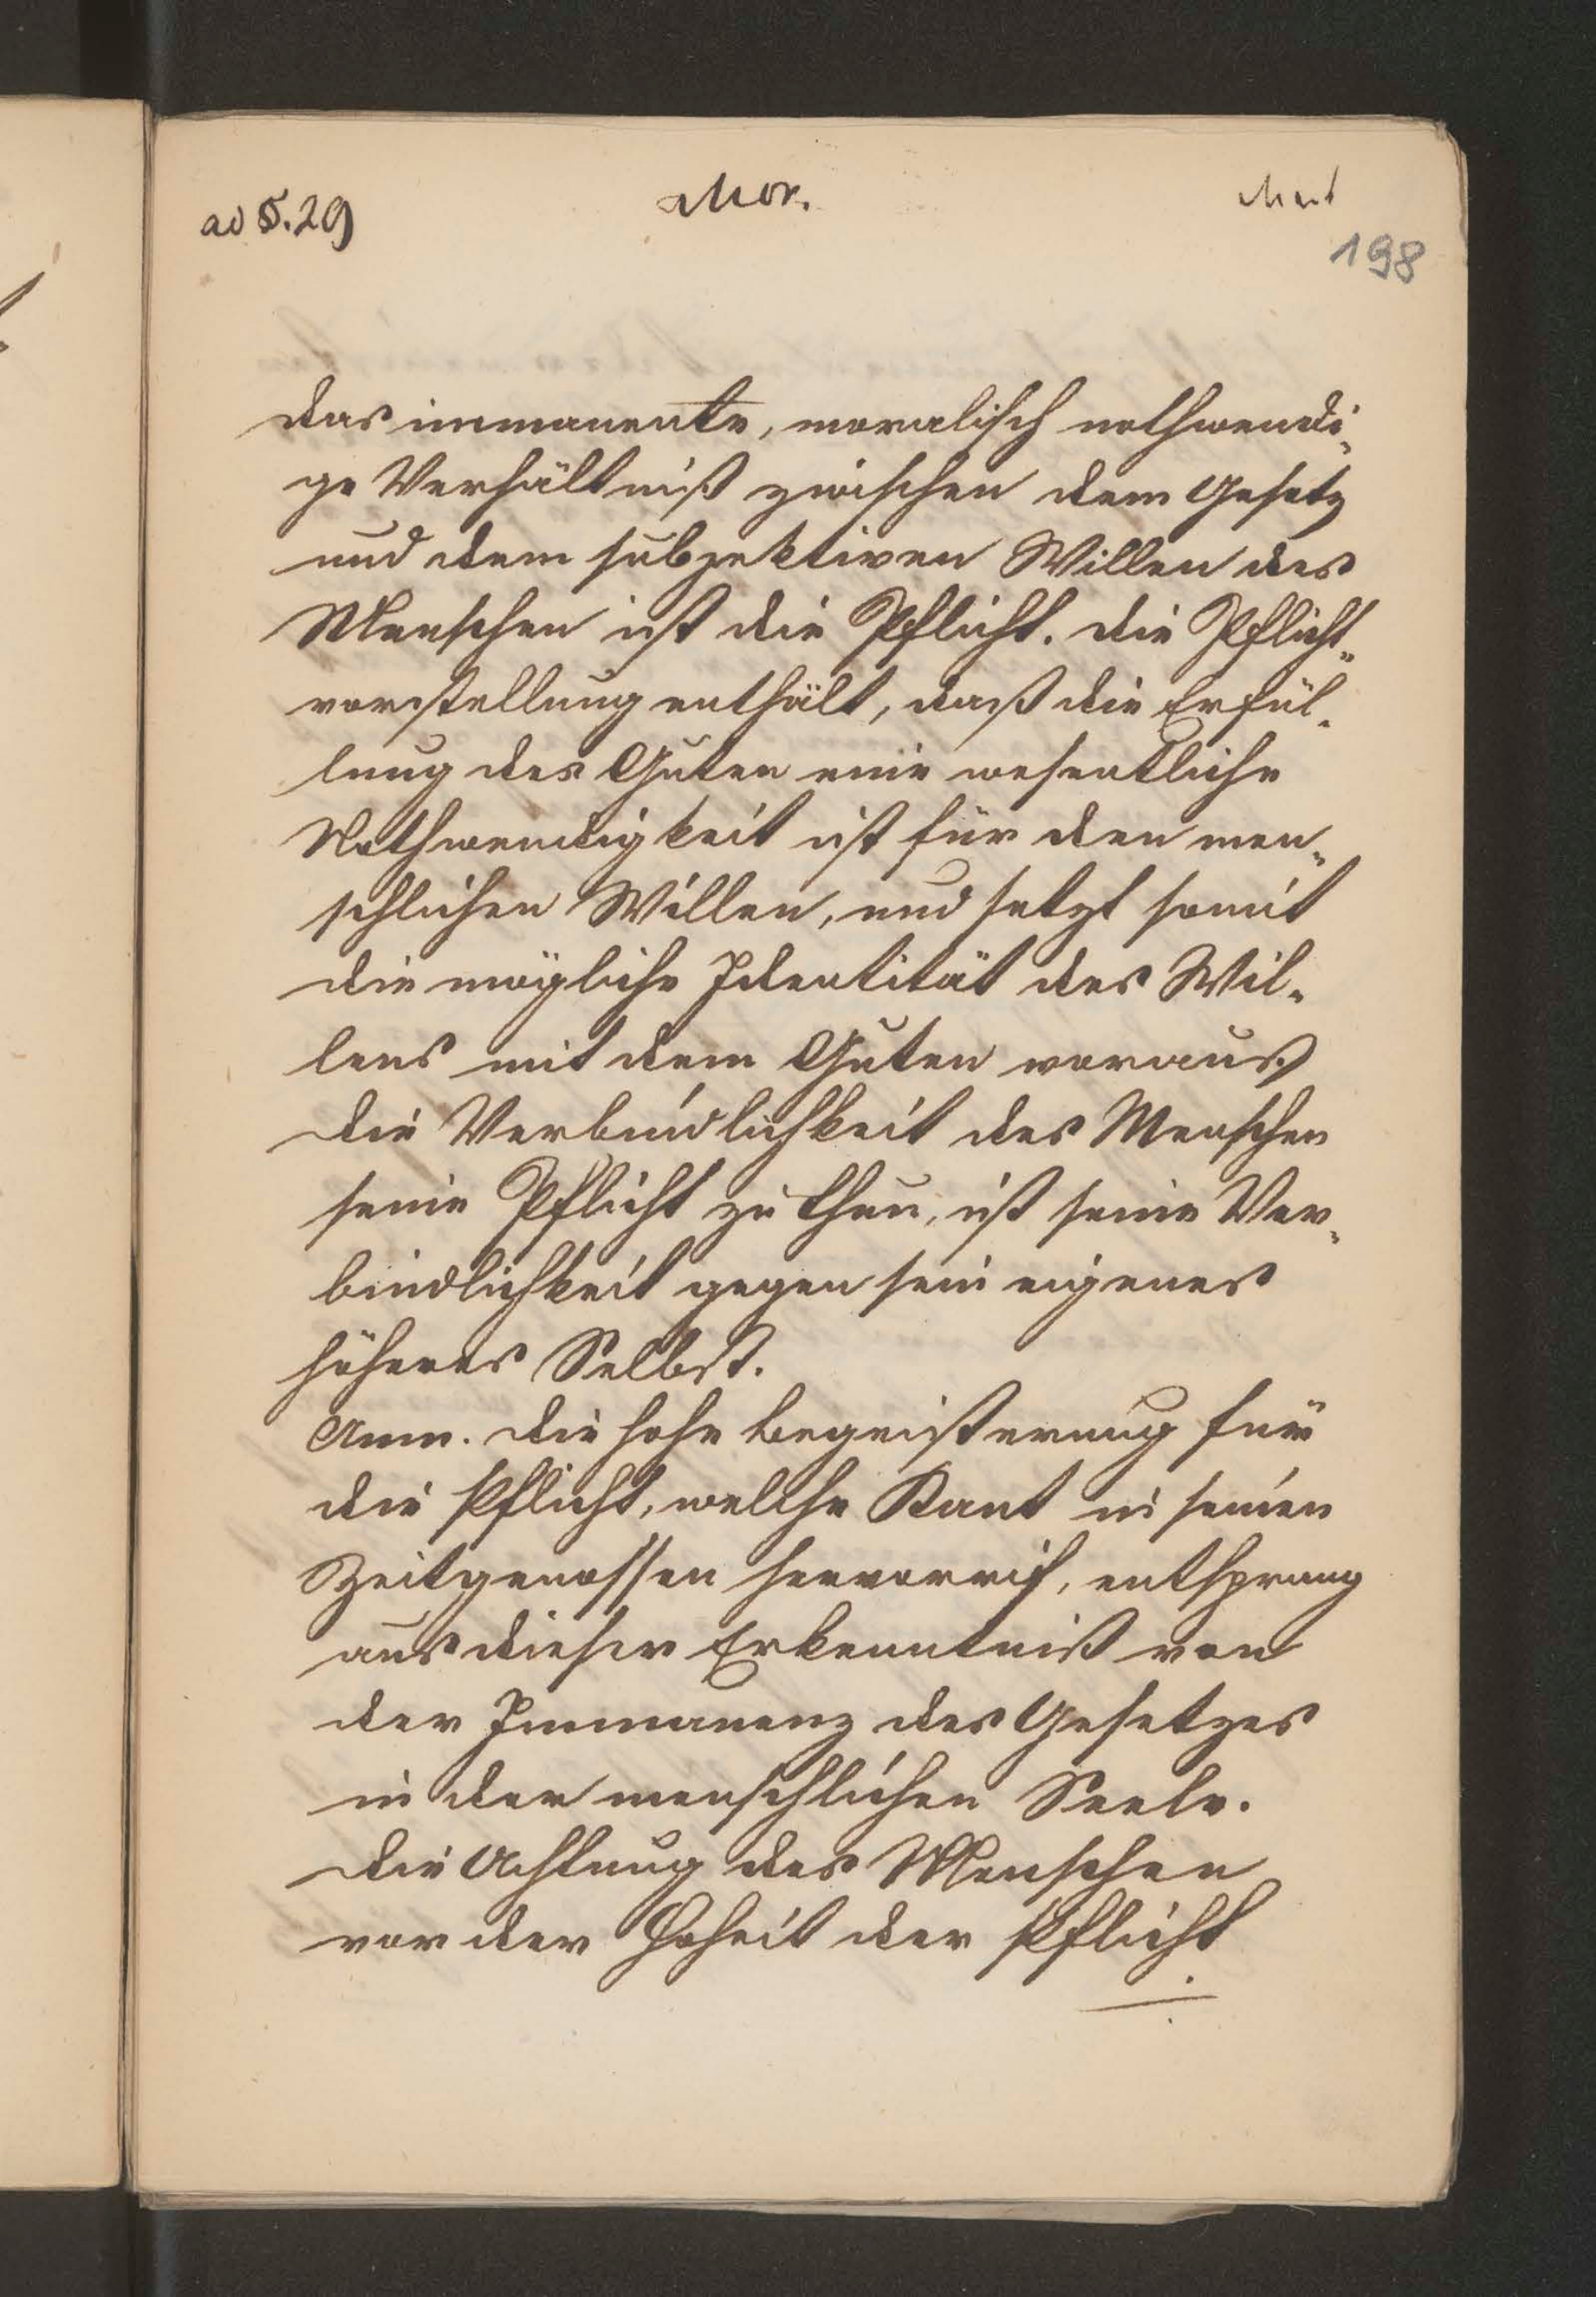 ad §. 29
Mor.
198
das immanente, moralisch nothwendi-
ge Verhältniß zwischen dem Gesetz
und dem subjektiven Willen des
Menschen ist die Pflicht. die Pflicht-
vorstellung enthält, daß die Erfül-
lung des Guten eine wesentliche
Nothwendigkeit ist für den men-
schlichen Willen, und setzt somit
die mögliche Identität des Wil-
lens mit dem Guten voraus
die Verbindlichkeit des Menschen
seine Pflicht zu thun, ist seine Ver-
bindlichkeit gegen sein eigenes
höheres Selbst.
Anm. die hohe Begeisterung für
die Pflicht, welche Kant in seinen
Zeitgenossen hervorrif, entsprang
aus dieser Erkenntniß von
der Immanenz des Gesetzes
in der menschlichen Seele.
die Achtung des Menschen
vor der Hoheit der Pflicht